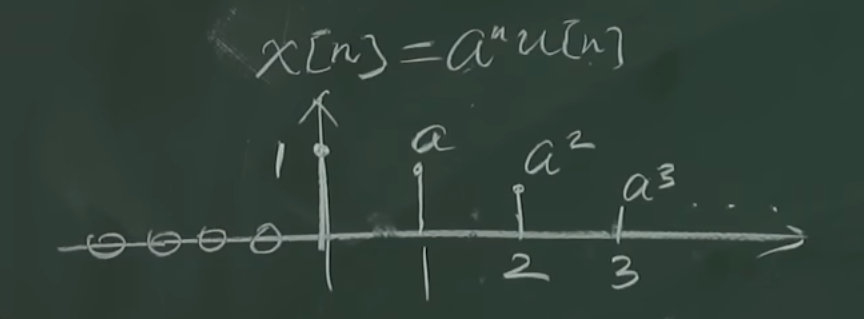 x[n] = aⁿu[n]
1 a a² a³ ....
1 2 3